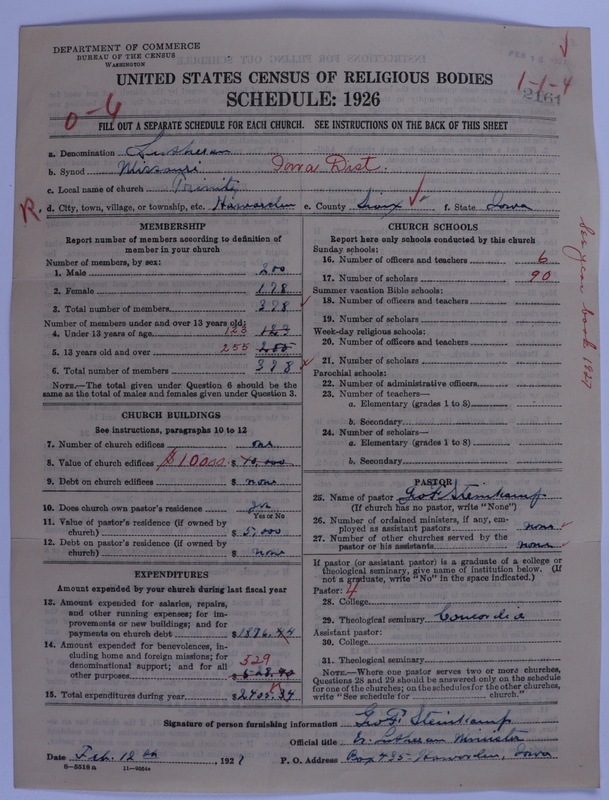 DEPARTMENT OF COMMERCE
BUREAU OF THE CENSUS
WASHINGTON
UNITED STATES CENSUS OF RELIGIOUS BODIES
SCHEDULE: 1926
1-1-4
2161
0-6
FILL OUT A SEPARATE SCHEDULE FOR EACH CHURCH. SEE INSTRUCTIONS ON THE BACK OF THIS SHEET
a. Denomination Lutheran
b. Synod Missouri Iowa Dist.
c. Local name of church Trinity
R. d. City, town, village, or township, etc. Hawarden e. County Sioux f. State Iowa
See year book 1927
MEMBERSHIP
Report number of members according to definition of member in your church
Number of members, by sex:
1. Male 200
2. Female 178
3. Total number of members 378
Number of members under and over 13 years old:
4. Under 13 years of age 123 123
5. 13 years old and over 255 255
6. Total number of members 378
NOTE.—The total given under Question 6 should be the same as the total of males and females given under Question 3.
CHURCH BUILDINGS
See instructions, paragraphs 10 to 12
7. Number of church edifices one
8. Value of church edifices $10000 $ 10,000
9. Debt on church edifices $ none
10. Does church own pastor's residence yes
Yes or No
11. Value of pastor's residence (if owned by church) $ 5,000
12. Debt on pastor's residence (if owned by church) $ none
EXPENDITURES
Amount expended by your church during last fiscal year
13. Amount expended for salaries, repairs, and other running expenses; for improvements or new buildings; and for payments on church debt $1876.44
14. Amount expended for benevolences, including home and foreign missions; for denominational support; and for all other purposes 529 $ 528.90
15. Total expenditures during year $2405.34
CHURCH SCHOOLS
Report here only schools conducted by this church
Sunday schools:
16. Number of officers and teachers 6
17. Number of scholars 90
Summer vacation Bible schools:
18. Number of officers and teachers
19. Number of scholars
Week-day religious schools:
20. Number of officers and teachers
21. Number of scholars
Parochial schools:
22. Number of administrative officers
23. Number of teachers—
a. Elementary (grades 1 to 8)
b. Secondary
24. Number of scholars—
a. Elementary (grades 1 to 8)
b. Secondary
PASTOR
25. Name of pastor Geo. F. Steinkamp
(If church has no pastor, write "None")
26. Number of ordained ministers, if any, employed as assistant pastors none
27. Number of other churches served by the pastor or his assistants none
If pastor (or assistant pastor) is a graduate of a college or theological seminary, give name of institution below. (If not a graduate, write "No" in the space indicated.)
Pastor: 4
28. College
29. Theological seminary Concordia
Assistant pastor:
30. College
31. Theological seminary
NOTE.—Where one pastor serves two or more churches, Questions 28 and 29 should be answered only on the schedule for one of the churches; on the schedules for the other churches, write "See schedule for church."
Signature of person furnishing information Geo. F. Steinkamp
Official title Ev. Lutheran Minister
Date Feb. 12th, 1927 P. O. Address Box 435 Hawarden, Iowa
8—5518a 11—9064a